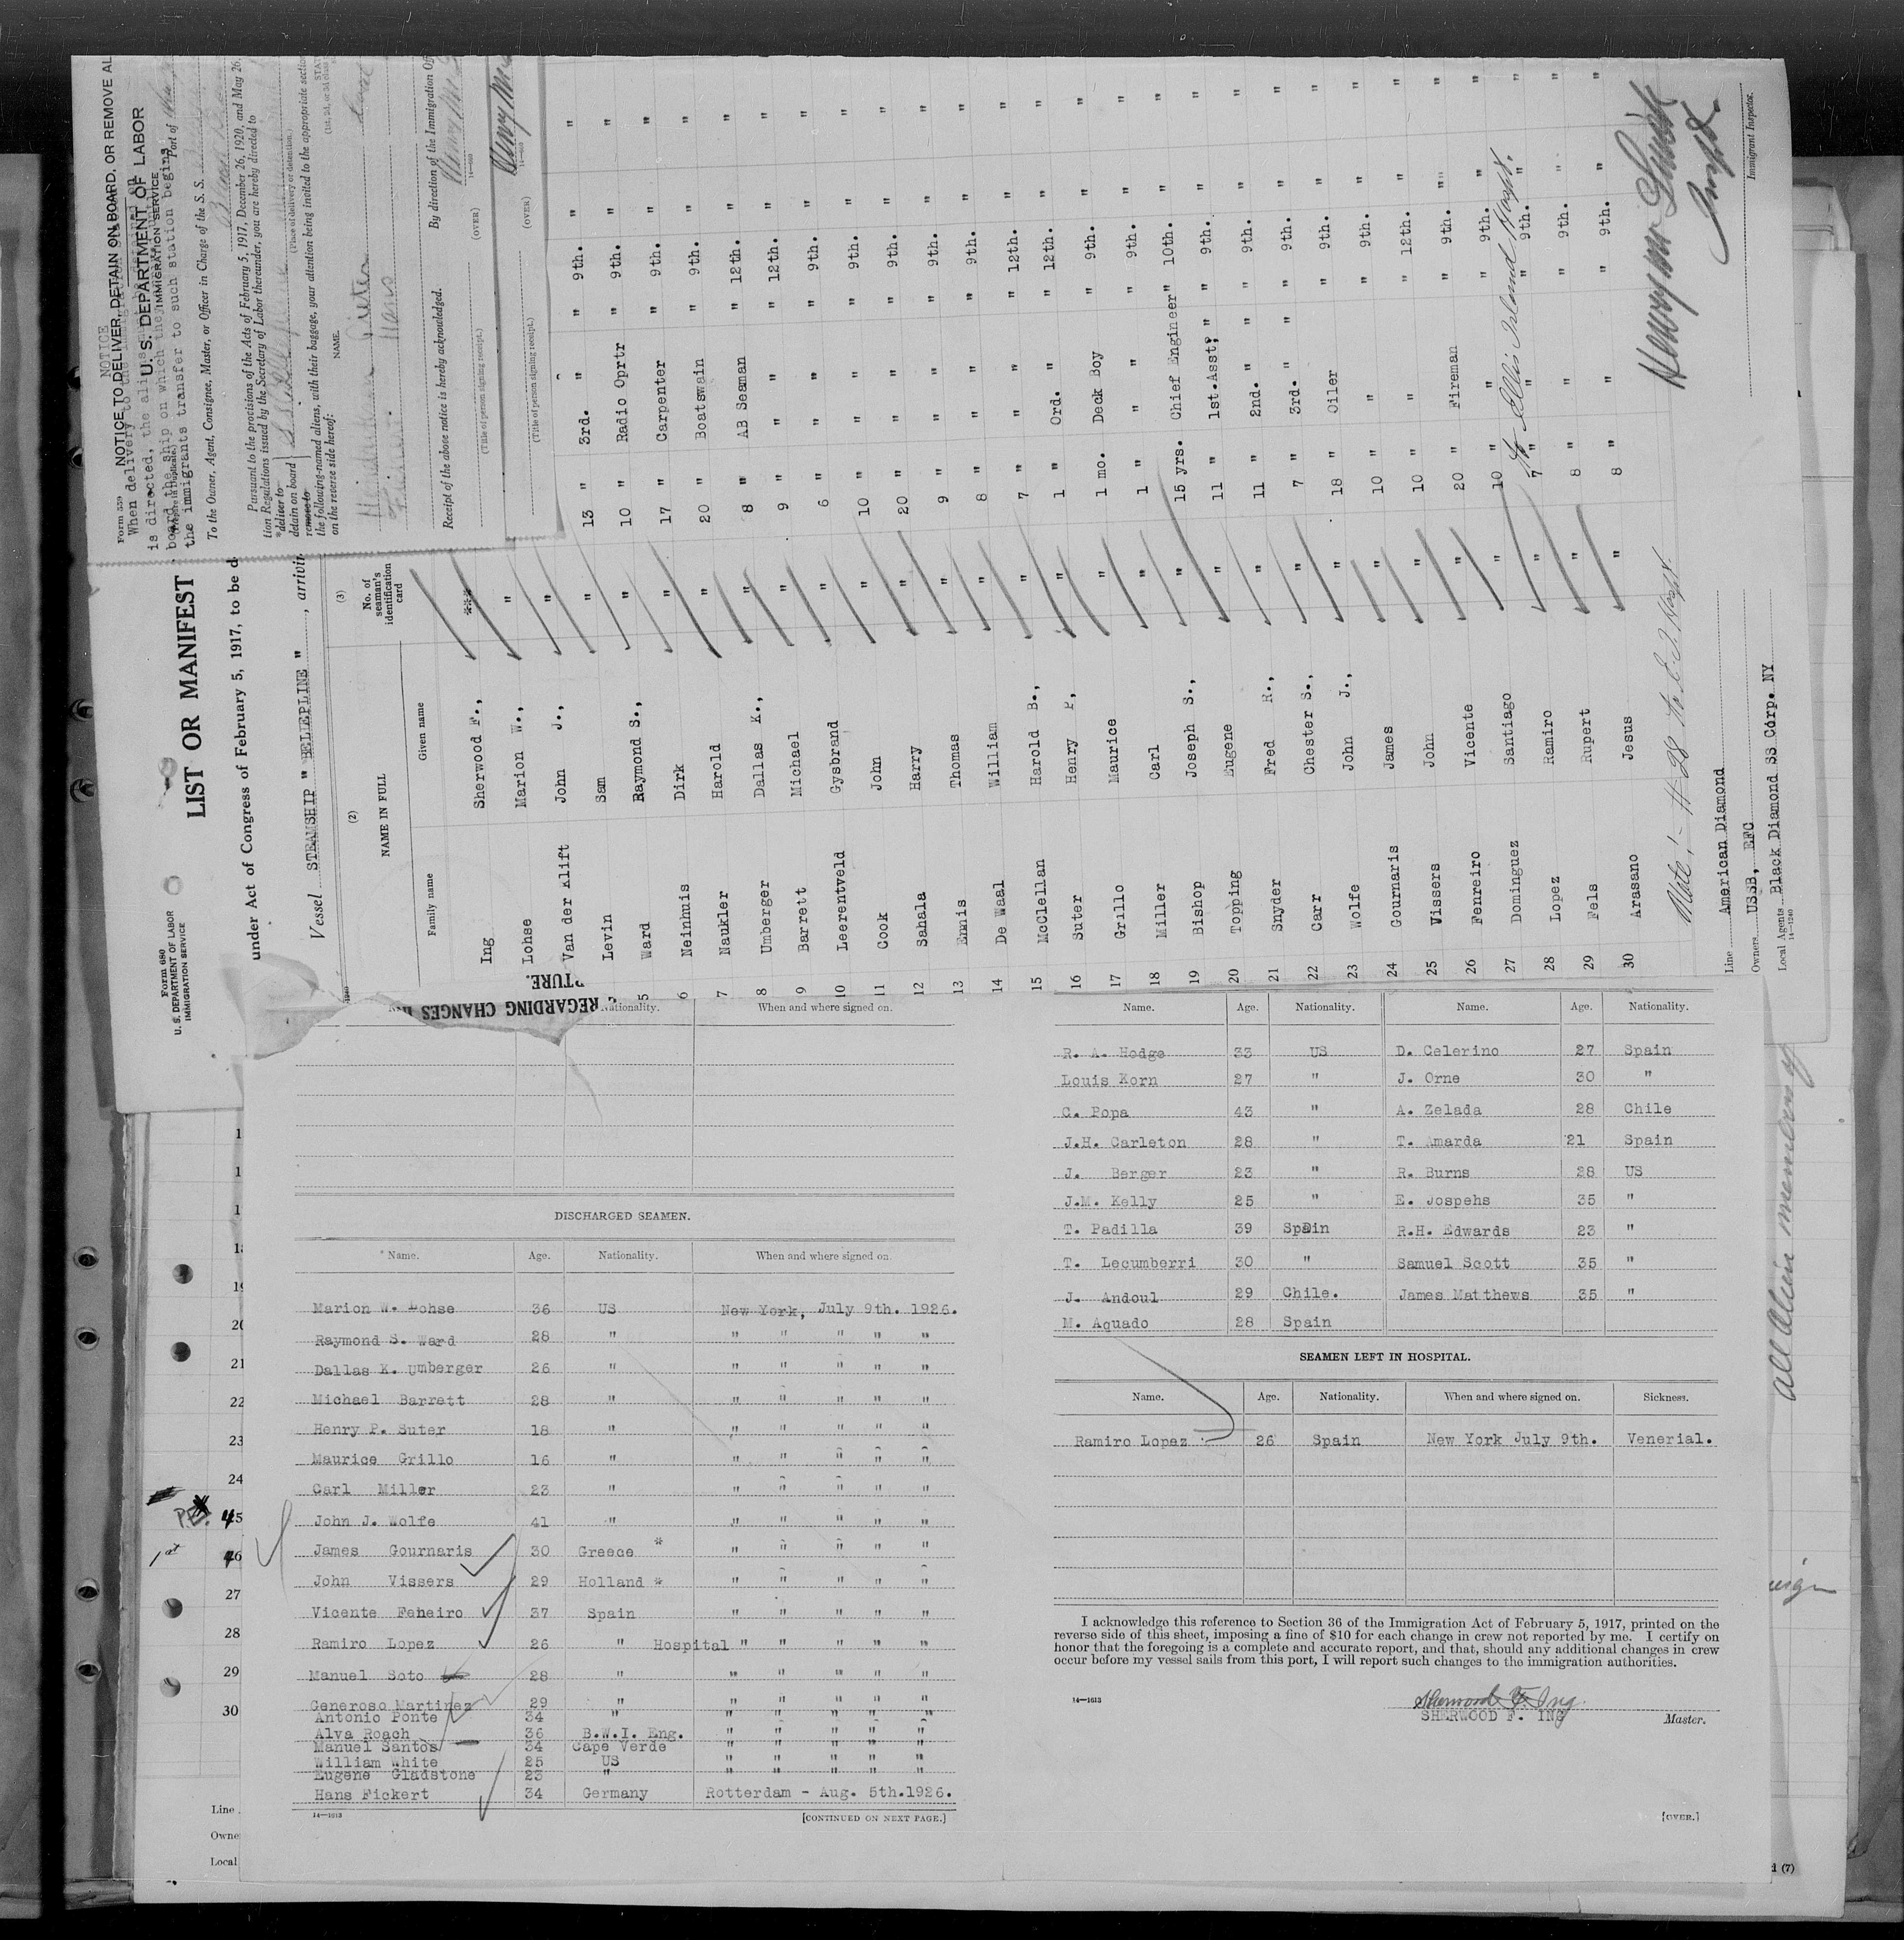 NOTICE
Form 539
NOTICE TO DELIVER, DETAIN ON BOARD, OR REMOVE AL
U. S. DEPARTMENT OF LABOR
IMMIGRATION SERVICE
When delivery to the
is directed, the aliens
board the ship on which they
the immigrants transfer to such station begins
Port of
To the Owner, Agent, Consignee, Master, or Officer in Charge of the S. S.
Pursuant to the provisions of the Acts of February 5, 1917, December 26, 1920, and May 26,
tion Regulations issued by the Secretary of Labor thereunder, you are hereby directed to
*deliver to
detain on board
remove to
(Place of delivery or detention.)
the following-named aliens, with their baggage, your attention being invited to the appropriate sectio
on the reverse side hereof:
NAME.
(1st, 2d, or 3d class
Pieter
Hans
By direction of the Immigration Off
Receipt of the above notice is hereby acknowledged.
(Title of person signing receipt.)
(OVER)
14—603
(Title of person signing receipt.)
(OVER)
Form 680
U. S. DEPARTMENT OF LABOR
IMMIGRATION SERVICE
LIST OR MANIFEST
under Act of Congress of February 5, 1917, to be d
Vessel STEAMSHIP " BELLEPLINE " , arrivin
(2) (3)
NAME IN FULL No. of seaman's identification card
Family name Given name
Ing Sherwood F., ***
Lohse Marion W., " 13 " 3rd. " " 9th. " "
Van der Klift John J., " 10 " Radio Oprtr " 9th. " "
Levin Sam " 17 " Carpenter " 9th. " "
5 Ward Raymond S., " 20 " Boatswain " 9th. " "
6 Neinhuis Dirk " 8 " AB Seaman " 12th. " "
7 Naukler Harold " 9 " " " 12th. " "
8 Umberger Dallas K., " 6 " " " 9th. " "
9 Barrett Michael " 10 " " " 9th. " "
10 Leerentveld Gysbrand " 20 " " " 9th. " "
11 Cook John " 9 " " " 9th. " "
12 Sahala Harry " 8 " " " 9th. " "
13 Ennis Thomas " 7 " " " 12th. " "
14 De Waal William " 1 " Ord. " " 12th. " "
15 McClellan Harold B., " 1 mo. Deck Boy " 9th. " "
16 Suter Henry P, " 1 " " " 9th. " "
17 Grillo Maurice " 15 yrs. Chief Engineer" 10th. " "
18 Miller Carl " 11 " 1st.Asst, " " 9th. " "
19 Bishop Joseph S., " 11 " 2nd. " " 9th. " "
20 Topping Eugene " 7 " 3rd. " " 9th. " "
21 Snyder Fred R., " 18 " Oiler " 9th. " "
22 Carr Chester S., " 10 " " " 9th. " "
23 Wolfe John J., " 10 " " " 12th. " "
24 Gournaris James " 20 " Fireman " 9th. " "
25 Vissers John " 10 " " " 9th. " "
26 Fenreiro Vicente " 7 " " " 9th. " "
27 Dominguez Santiago " 8 " " " 9th. " "
28 Lopez Ramiro " 8 " " " 9th. " "
29 Fels Rupert "
30 Arasano Jesus "
to Ellis Island Hospt.
Note: - # 28 to E. I. Hospt.
Line American Diamond
Owners USSB, EFC
Local Agents Black Diamond Ss Corp. NY
14—1240
Immigrant Inspector.
REGARDING CHANGES IN
PTURE.
Nationality. When and where signed on.
DISCHARGED SEAMEN.
Name. Age. Nationality. When and where signed on.
Marion W. Lohse 36 US New York, July 9th. 1926.
Raymond S. Ward 28 " " " " " "
Dallas K. Umberger 26 " " " " " "
Michael Barrett 28 " " " " " "
Henry P. Suter 18 " " " " " "
Maurice Grillo 16 " " " " " "
Carl Miller 23 " " " " " "
John J. Wolfe 41 " " " " " "
James Gournaris 30 Greece * " " " " "
John Vissers 29 Holland * " " " " "
Vicente Feneiro 37 Spain " " " " "
Ramiro Lopez 26 " Hospital " " " " "
Manuel Soto 28 " " " " " "
Generoso Martinez 29 " " " " " "
Antonio Ponte 34 " " " " " "
Alva Roach 36 B.W.I. Eng. " " " " "
Manuel Santos 34 Cape Verde " " " " "
William White 25 US " " " " "
Eugene Gladstone 23 " " " " " "
Hans Fickert 34 Germany Rotterdam - Aug. 5th.1926.
14—1613 [CONTINUED ON NEXT PAGE.]
Name. Age. Nationality. Name. Age. Nationality.
R. A. Hodge 33 US D. Celerino 27 Spain
Louis Korn 27 " J. Orne 30 "
C. Popa 43 " A. Zelada 28 Chile
J.H. Carleton 28 " T. Amarda 21 Spain
J. Berger 23 " R. Burns 28 US
J.M. Kelly 25 " E. Jospehs 35 "
T. Padilla 39 Spain R.H. Edwards 23 "
T. Lecumberri 30 " Samuel Scott 35 "
J. Andoul 29 Chile. James Matthews 35 "
M. Aguado 28 Spain
SEAMEN LEFT IN HOSPITAL.
Name. Age. Nationality. When and where signed on. Sickness.
Ramiro Lopez 26 Spain New York July 9th. Venerial.
I acknowledge this reference to Section 36 of the Immigration Act of February 5, 1917, printed on the
reverse side of this sheet, imposing a fine of $10 for each change in crew not reported by me. I certify on
honor that the foregoing is a complete and accurate report, and that, should any additional changes in crew
occur before my vessel sails from this port, I will report such changes to the immigration authorities.
14—1613
Sherwood F. Ing.
SHERWOOD F. ING
Master.
[OVER.]
19
20
21
22
23
24
27
28
29
30
1st
Line
Owne
Local
All Alien members of
(7)